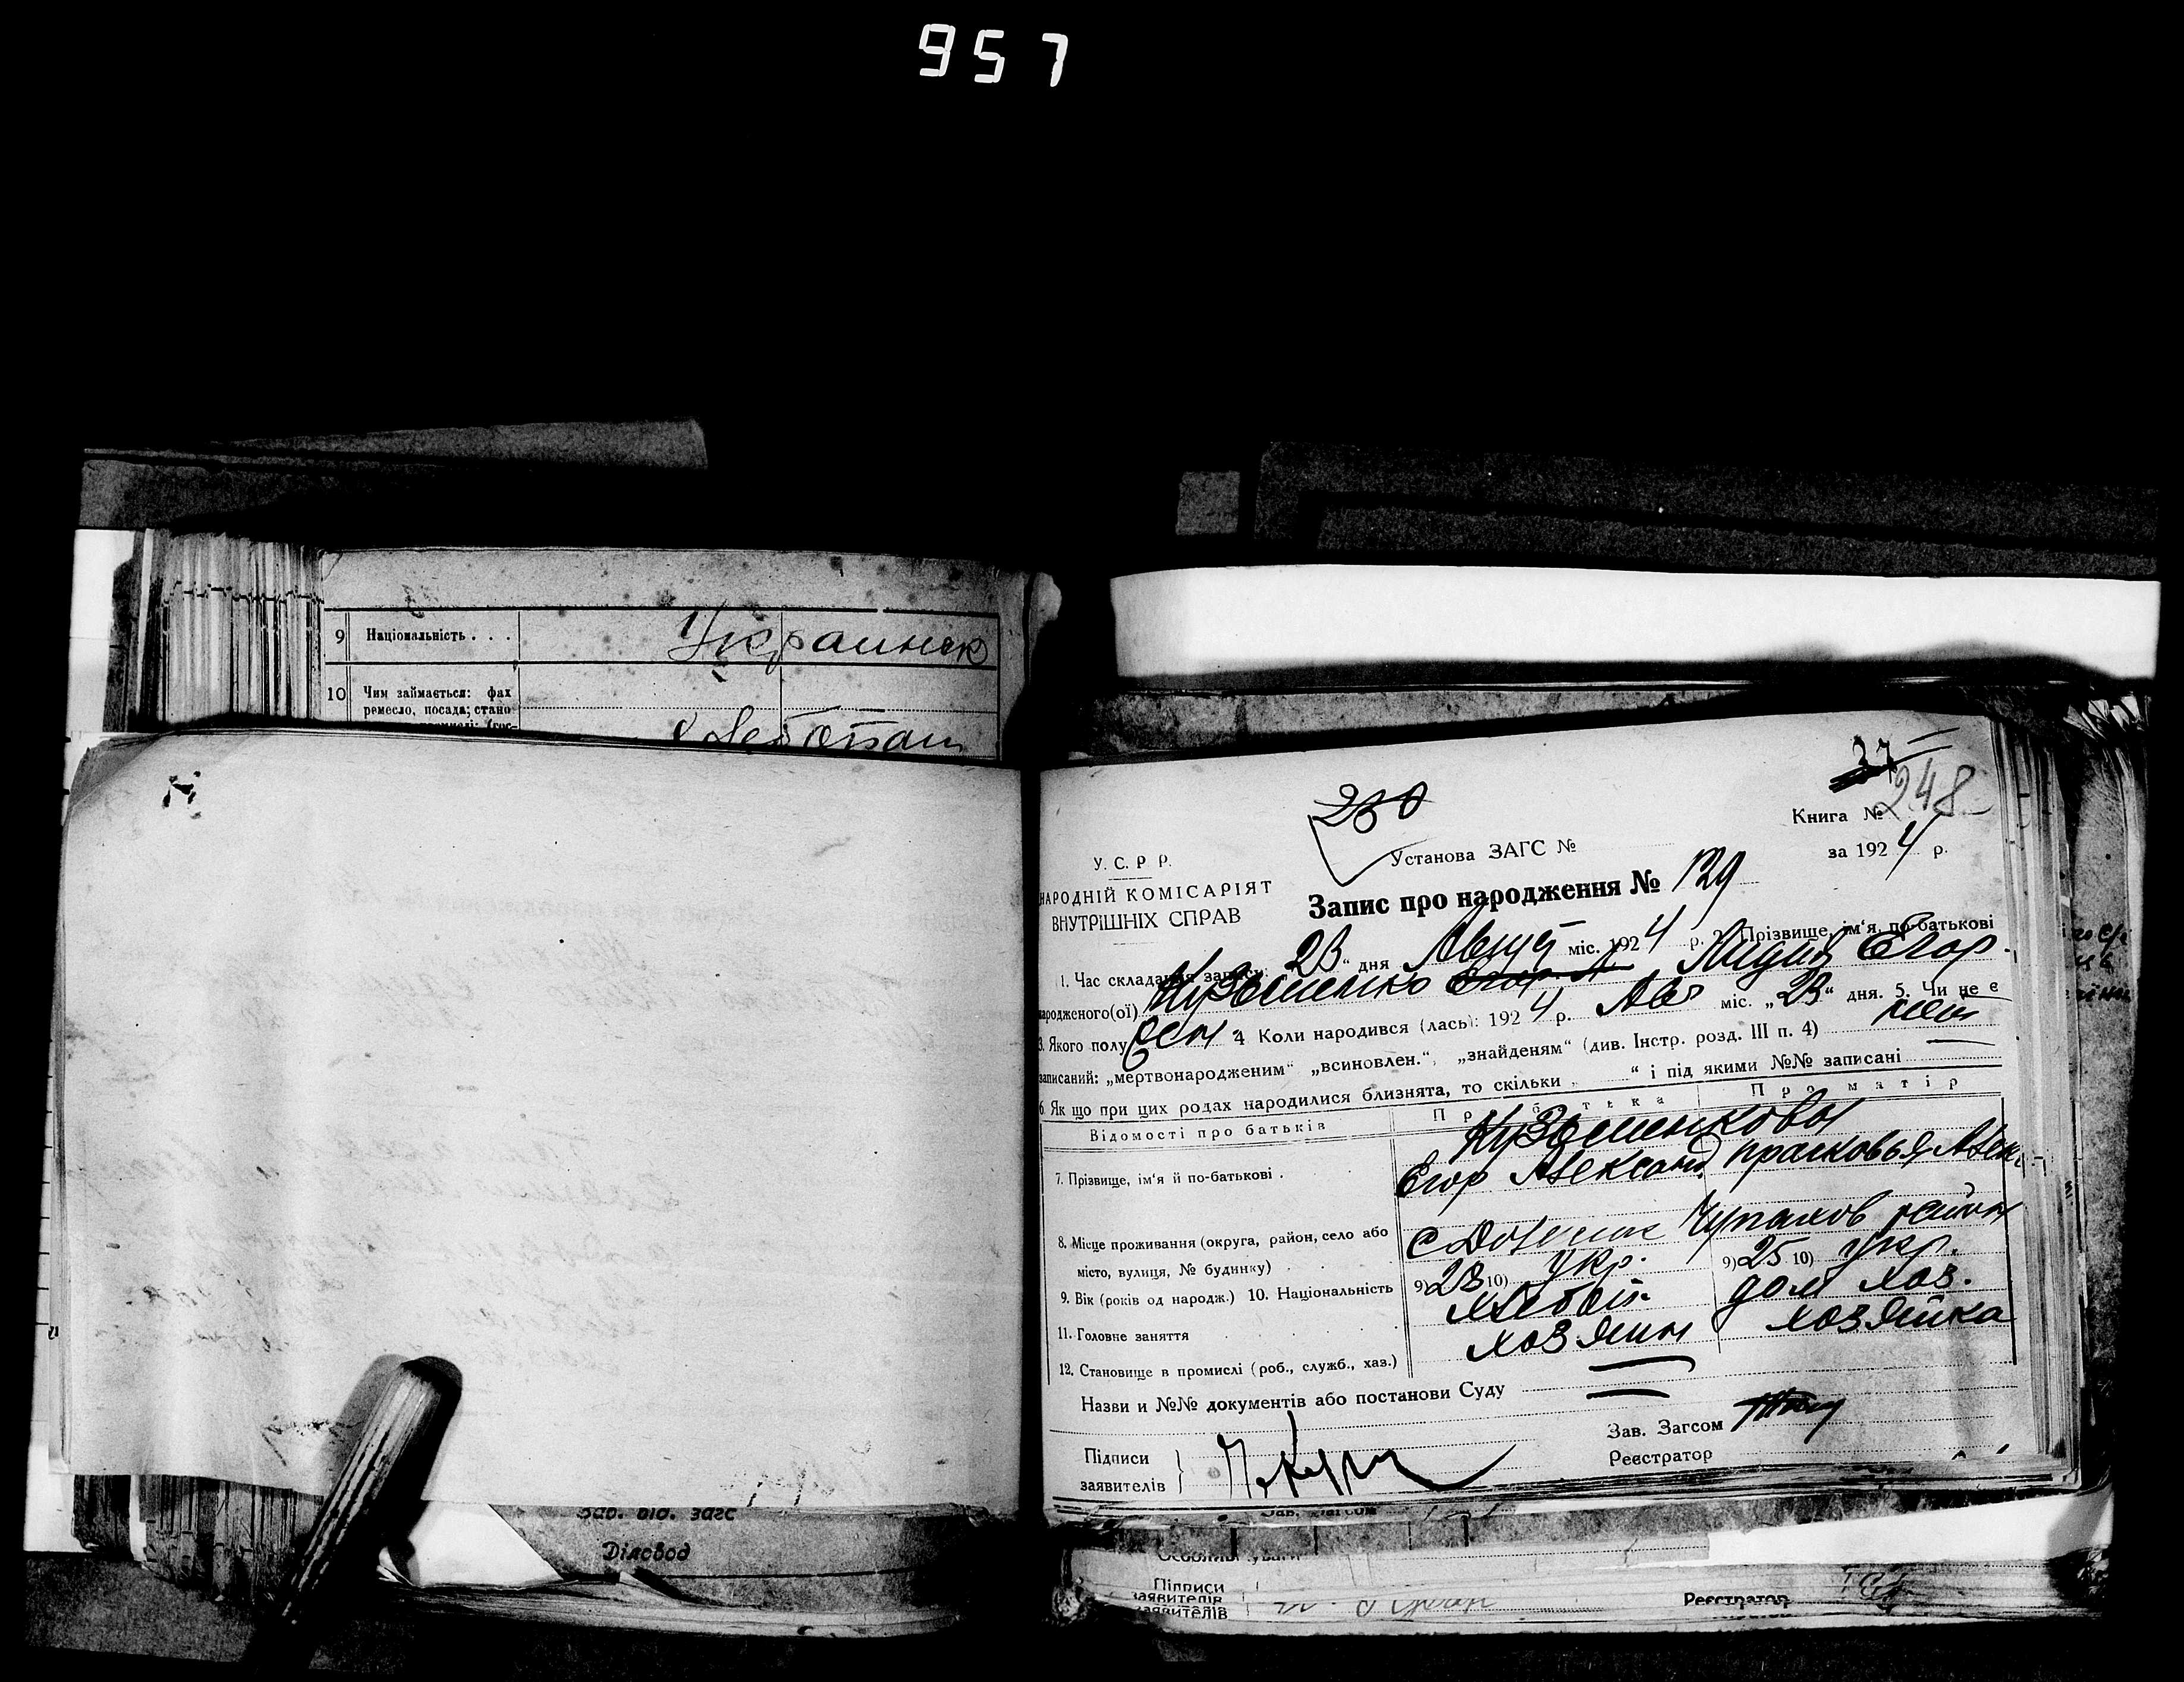 957
9 Національність . . . Украинск
10 Чим займається: фах
ремесло, посада; стано-
Зав. від. загс
Діловод
37
248
230
Книга №
Установа ЗАГС №
за 1924 р.
У. С. Р. Р.
НАРОДНІЙ КОМІСАРІЯТ
ВНУТРІШНІХ СПРАВ
Запис про народження № 129
1. Час складання запису: „23“ дня Август міс. 1924 р. 2. Прізвище, ім'я, по-батькові
народженого(ої) Кузьменко Лидия Егор.
3. Якого полу жен 4 Коли народився (лась): 1924 р. Авг міс. „23“ дня. 5. Чи не є
записаний: „мертвонародженим“ „всиновлен.“, „знайденям“ (див. Інстр. розд. III п. 4)
6. Як що при цих родах народилися близнята, то скільки „ “ і під якими №№ записані
Відомості про батьків Про батька Про матір
Кузьменковы
7. Прізвище, ім'я й по-батькові . Егор Александ Прасковья Алек
8. Місце проживання (округа, район, село або
місто, вулиця, № будинку) . с Чупахов район
9. Вік (років од народж.) 10. Національність 9) 23 10) Укр. 9) 25 10) Укр.
11. Головне заняття Хлебоп. дом хоз.
12. Становище в промислі (роб., служб., хаз.) хозяин хозяйка
Назви и №№ документів або постанови Суду
Зав. Загсом
Підписи
заявителів
Реєстратор
Зав. Загсом
Підписи
заявителів
Реєстратор